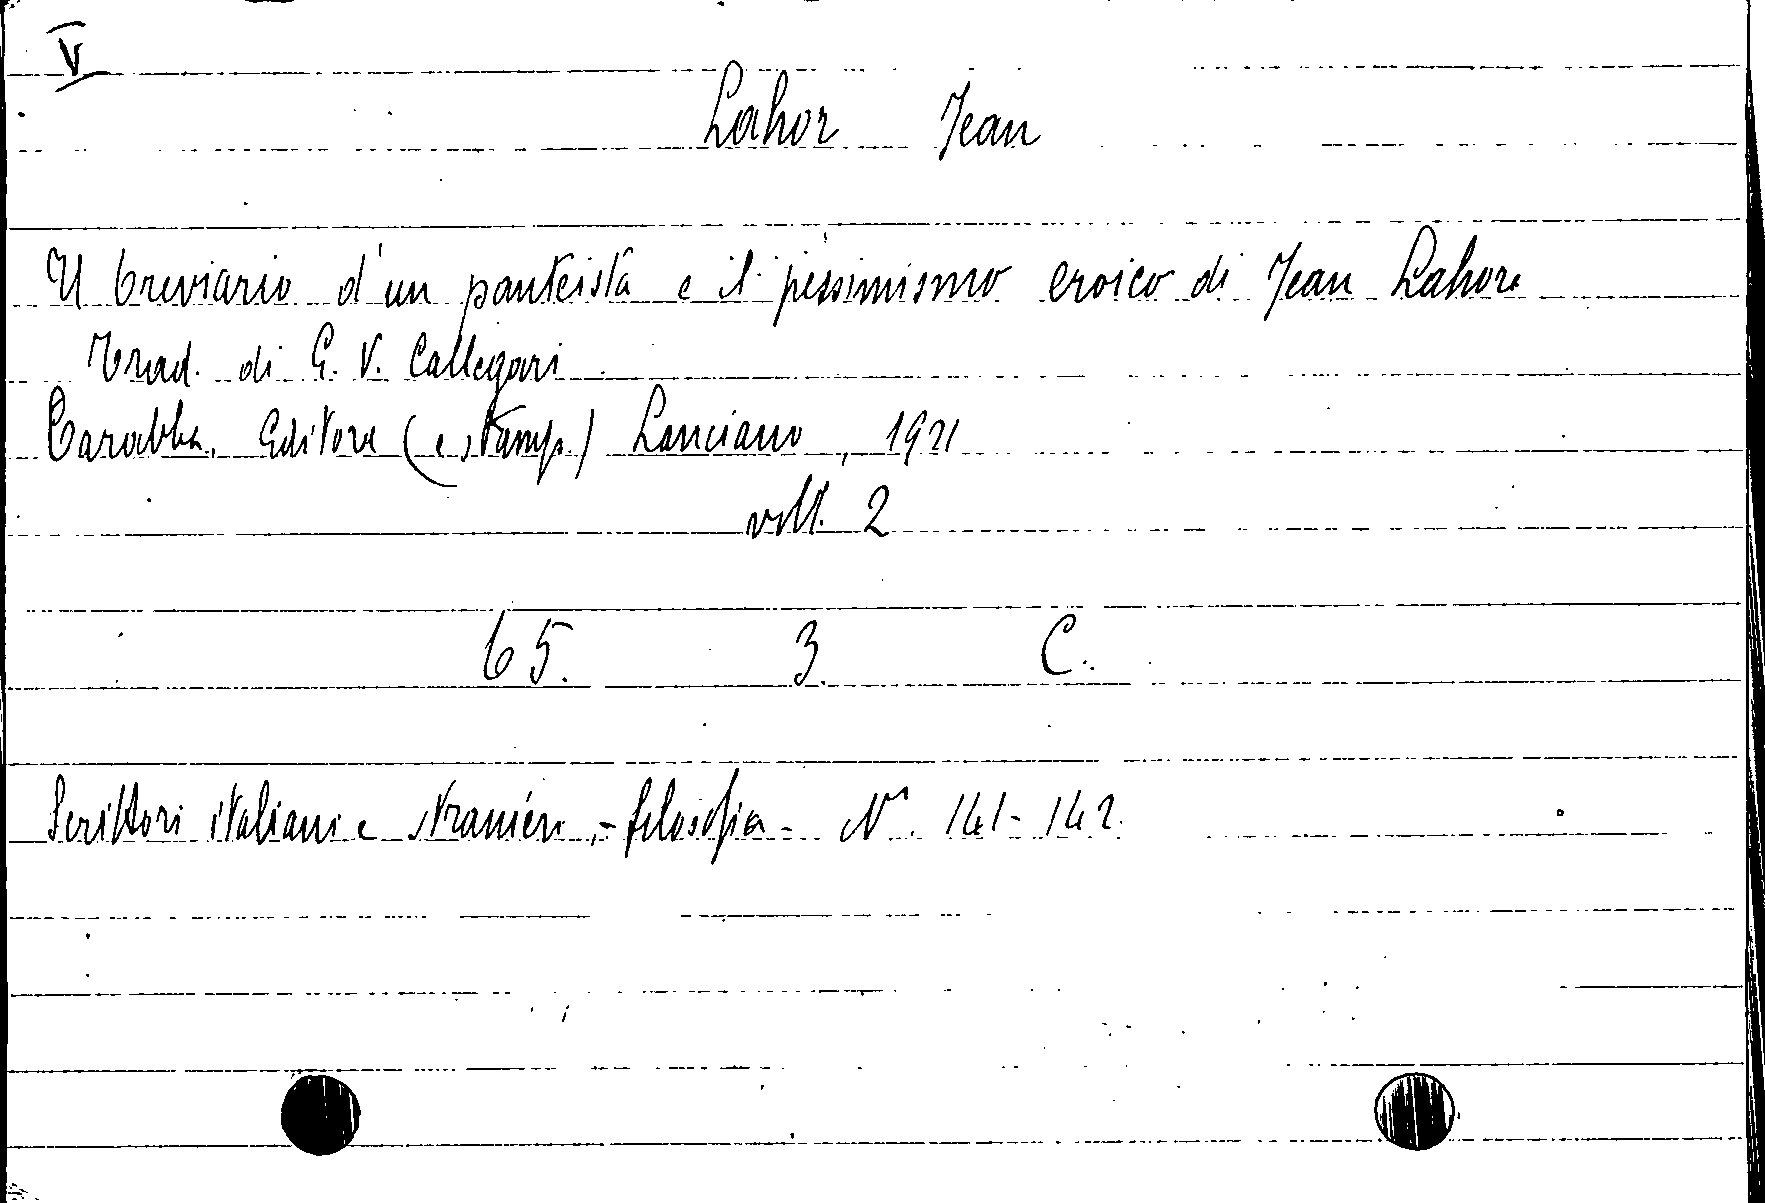 V
Lahor Jean
Il breviario d'un panteista e il pessimismo eroico di Jean Lahore
Trad. di G. V. Callegari
Carabba, Editore (e stamp.) Lanciano, 1921
voll. 2
65. 3. C.
Scrittori italiani e stranieri - filosofia - N. 141-142.